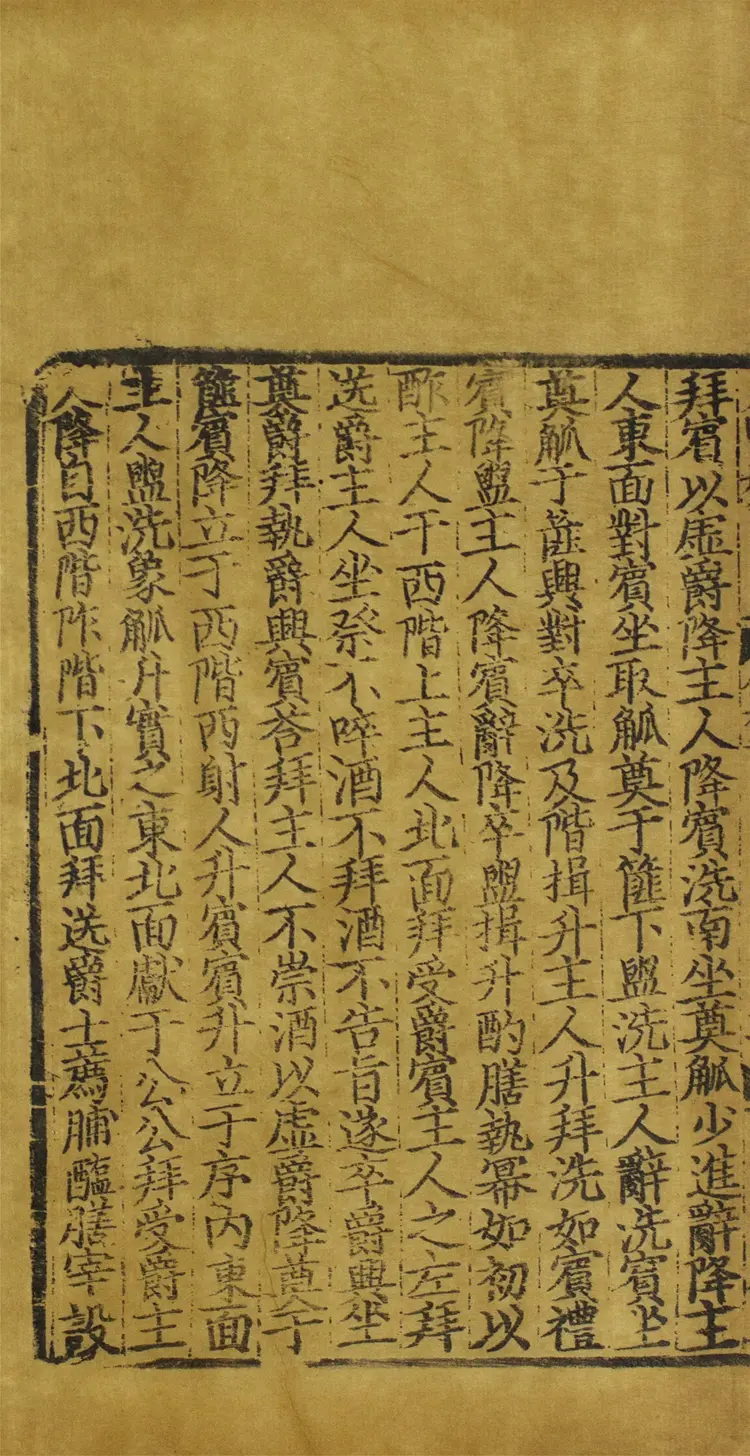 拜賔以虛爵降主人降賔洗南坐奠觚少進辭降主
人東面對賔坐取觚奠于篚下盥洗主人辭洗賔坐
奠觚于篚興對卒洗及階揖升主人升拜洗如賔禮
賔降盥主人降賔辭降卒盥揖升酌膳執冪如初以
酢主人于西階上主人北面拜受爵賔主人之左拜
送爵主人坐祭不啐酒不拜酒不告旨遂卒爵興坐
奠爵拜執爵興賔荅拜主人不崇酒以虛爵降奠于
篚賔降立于西階西射人升賔賔升立于序內東面
主人盥洗象觚升實之東北面獻于公公拜受爵主
人降自西階阼階下北面拜送爵士薦脯醢膳宰設